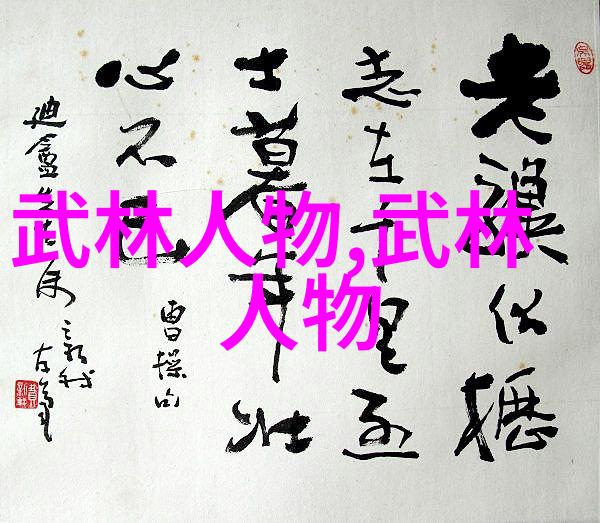 老驥伏櫪
志在千里烈
士暮年壯
心不已
曹操句
武林人物,武林
人物